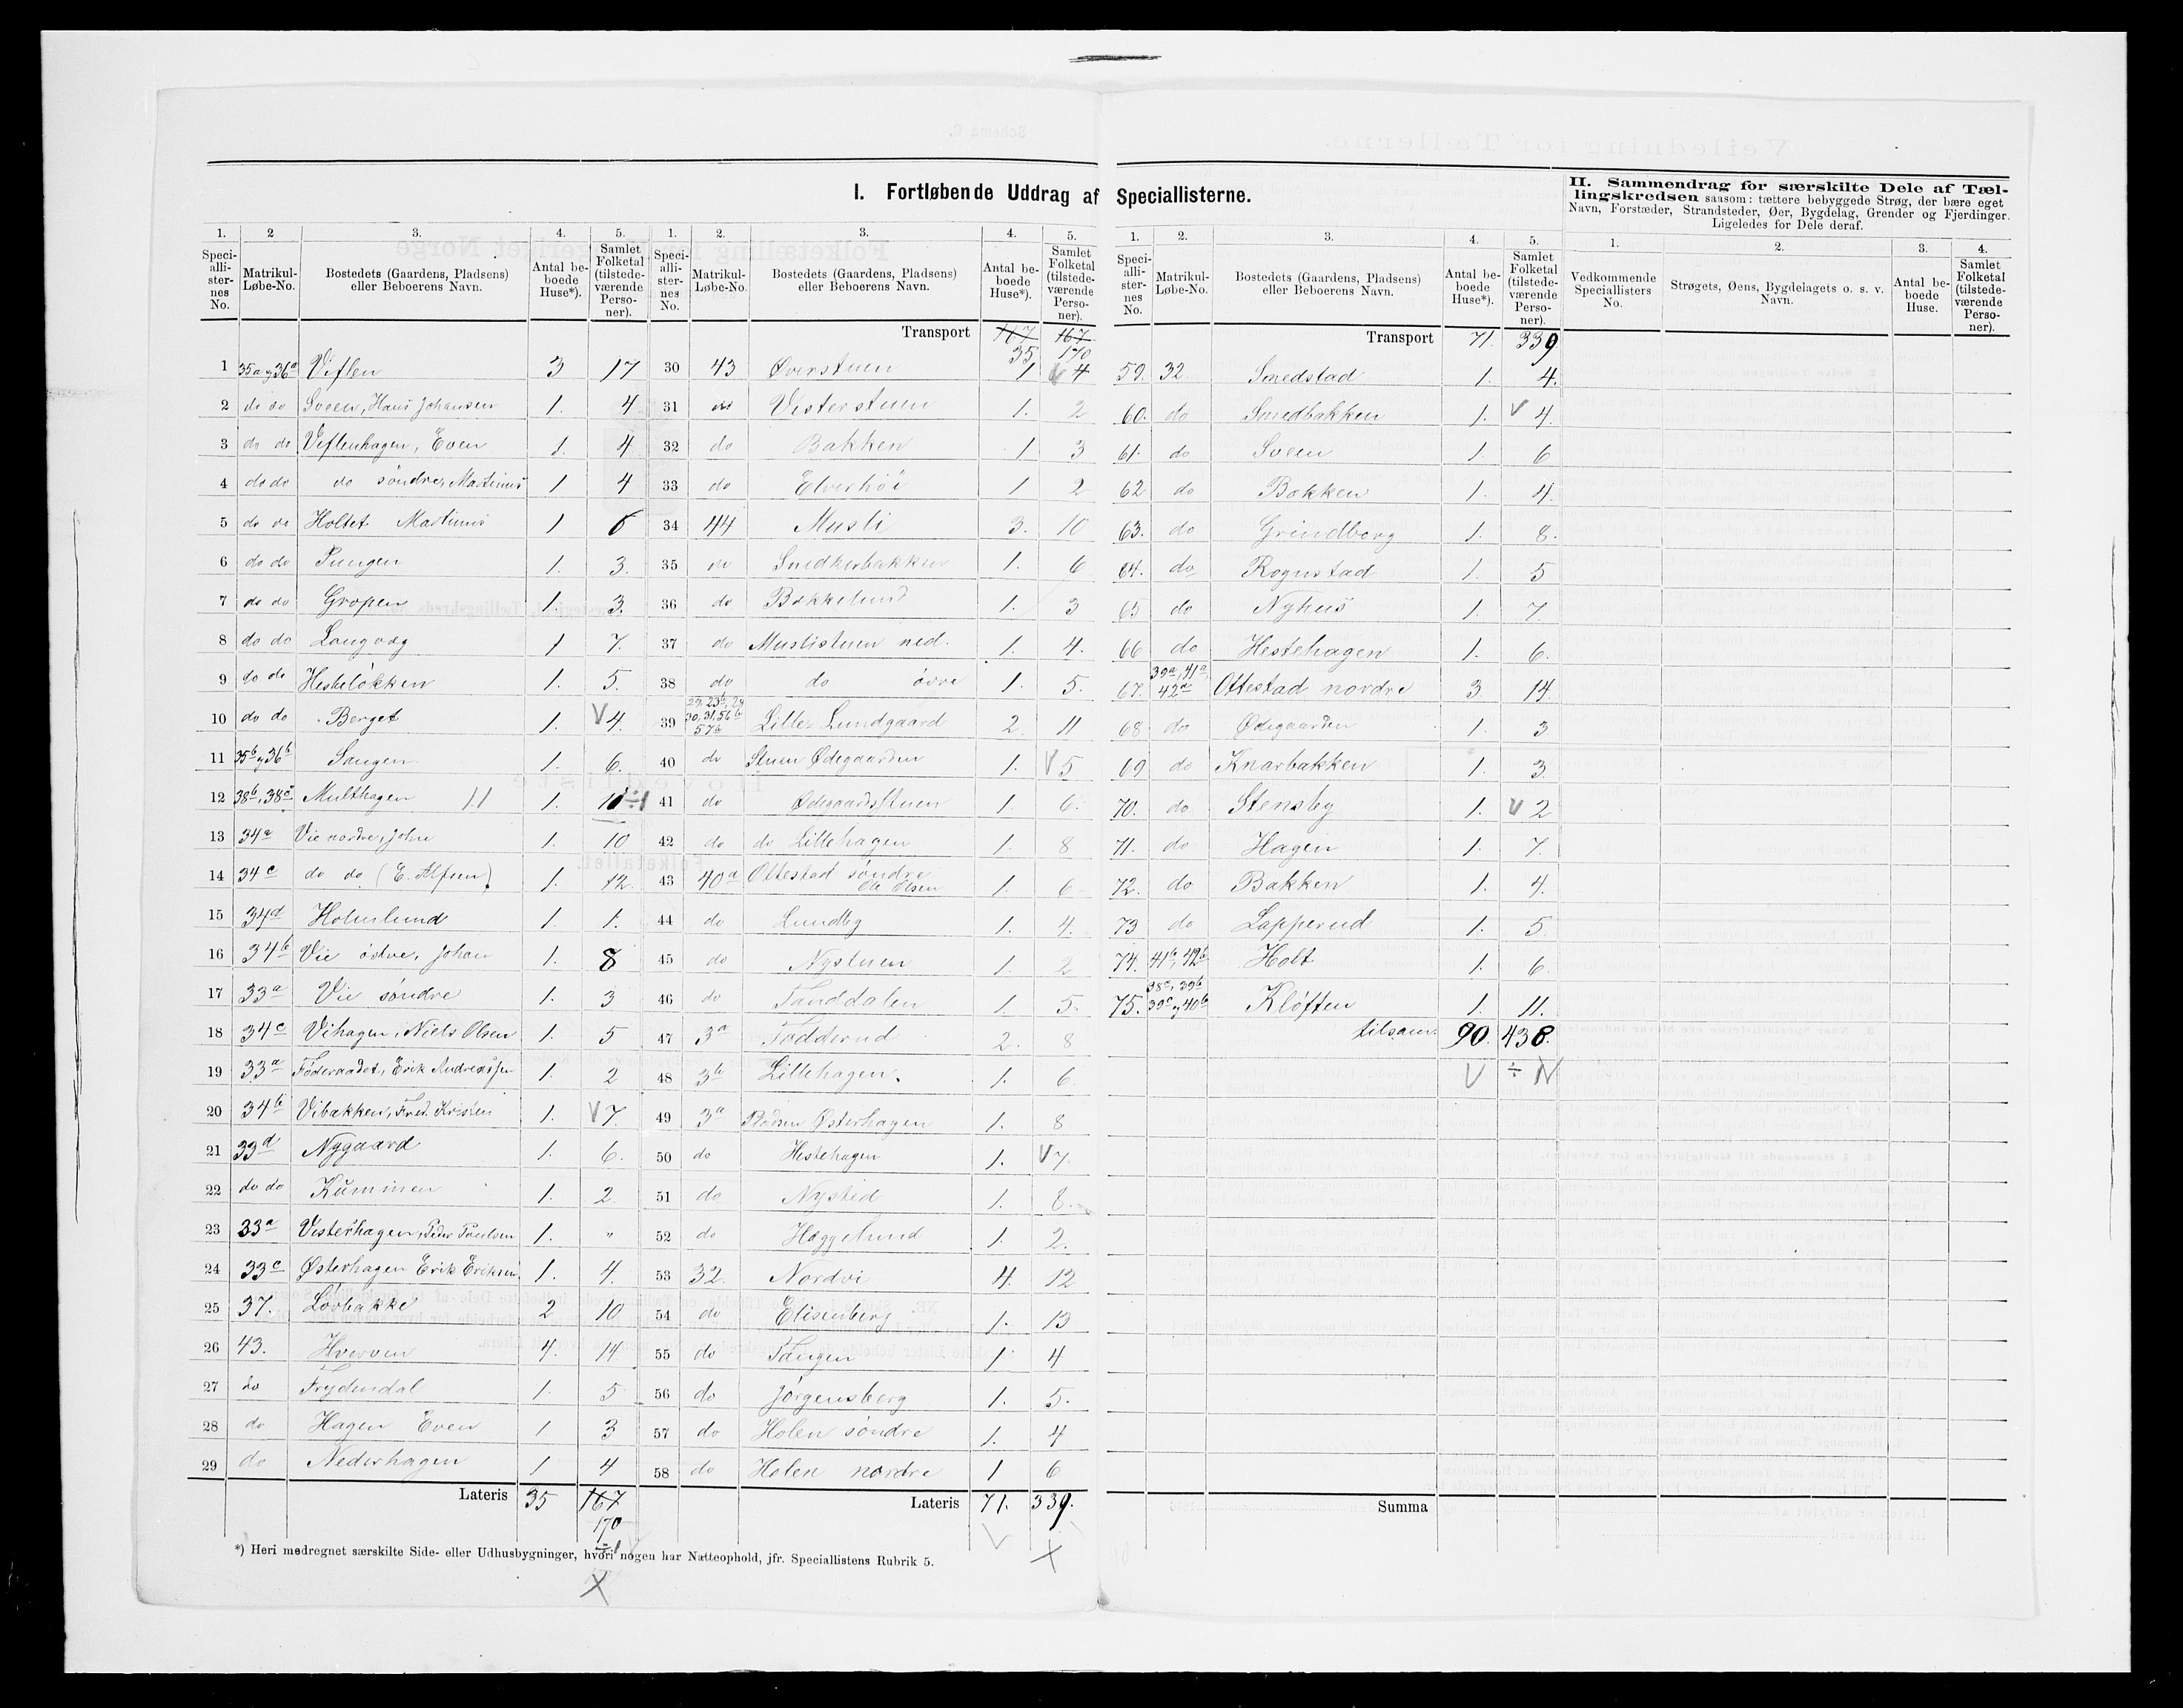 I. Fortløbende Uddrag af Speciallisterne.
II. Sammendrag for særskilte Dele af Tæl-
lingskredsen saasom: tættere bebyggede Strøg, der bære eget
Navn, Forstæder, Strandsteder, Øer, Bygdelag, Grender og Fjerdinger.
Ligeledes for Dele deraf.
1. 2 3. 4. 5.
Speci-alli-ster-nes No. Matrikul-Løbe-No. Bostedets (Gaardens, Pladsens) eller Beboerens Navn. Antal be-boede Huse*). Samlet Folketal (tilstede-værende Perso-ner).
1 35a og 36a Viflen 3 17
2 do do Sveen, Hans Johansen 1. 4
3 do do Viflenhagen, Even 1. 4
4 do do do søndre, Martinus 1 4
5 do do Holtet Martinus 1 6
6 do do Pungen 1. 3.
7 do do Gropen 1. 3.
8 do do Langvæg 1 7.
9 do do Hesteløkken 1. 5.
10 do do Berget 1. V 4.
11 35b og 36b Sangen 1. 6.
12 38b, 38c Multhagen 11 1. 10 ÷1
13 34a Vie nordre, John 1. 10
14 34c do do (E. Alfsen) 1. 12.
15 34d Holmlund 1. 1.
16 34b Vie østre, Johan 1. 8
17 33a Vie søndre 1. 3
18 34c Vihagen, Niels Olsen 1. 5
19 33a Føderaadet, Erik Andreassen 1. 2
20 34b Vibakken, Fred. Kristen 1. V 7.
21 33d Nygaard 1. 6.
22 do do Kummen 1. 2.
23 33a Vesterhagen, Peder Poulsen 1. "
24 33c Østerhagen Erik Eriksen 1. 4.
25 37. Løvbakke 2 10
26 43. Hverven 4. 14
27 do Frydendal 1. 5
28 do Hagen Even 1 3
29 do Nederhagen 1 4
Lateris 35 167
170
÷1
1. 2. 3. 4. 5.
Speci-alli-ster-nes No. Matrikul-Løbe-No. Bostedets (Gaardens, Pladsens) eller Beboerens Navn. Antal be-boede Huse*). Samlet Folketal (tilstede-værende Perso-ner).
Transport 167 167
35 170
30 43 Øverstuen 1 V 4
31 do Vesterstuen 1. 2
32 do Bakken 1 3
33 do Elverhöi 1 2
34 44 Musli 3. 10
35 do Snedkerbakken 1. 6
36 do Bakkelund 1. 3
37 do Muslistuen ned. 1. 4.
38 do do øvre 1. 5.
39 30, 31, 56b 57b Lille-Lundgaard 2. 11
40 do Stuen Ødegaarden 1. V 5
41 do Ødegaardsstuen 1. 6.
42 do do Lillehagen 1. 8
43 40a Ottestad søndre Ole Olsen 1. 6
44 do Lundby 1. 4.
45 do Nystuen 1. 2
46 do Tanddalen 1. 5.
47 3a Todderud 2. 8
48 3b Lillehagen. 1. 6
49 3a Pladsen Østerhagen 1. 8
50 do Hestehagen 1. V 7.
51 do Nysted 1. 8.
52 do Heggelund 1. 2.
53 32. Nordvi 4. 12
54 do Elisenberg 1. 13
55 do Tangen 1. 4
56 do Jørgensberg 1. 5.
57 do Holen søndre 1. 4
58 do Holen nordre 1 6
Lateris 71. 339.
1. 2. 3. 4. 5.
Speci-alli-ster-nes No. Matrikul-Løbe-No. Bostedets (Gaardens, Pladsens) eller Beboerens Navn. Antal be-boede Huse*). Samlet Folketal (tilstede-værende Perso-ner).
Transport 71. 339
59. 32 Smedstad 1. 4.
60. do Smedbakken 1. V 4.
61. do Sveen 1. 6
62 do Bakken 1. 4.
63. do Grindborg 1. 8.
64. do Rognstad 1. 5
65 do Nyhus 1. 7.
66 do Hestehagen 1. 6.
67. 39a, 41a, 42a Ottestad nordre 3. 14.
68 do Ødegaarden 1. 3
69 do Knarbakken 1. 3.
70. do Stensby 1. V 2
71. do Hagen 1. 7.
72. do Bakken 1. 4.
73 do Lapperud 1. 5
74. 41b, 42b Holt 1. 6.
75. 38a, 39b 39c og 40b Kløften 1. 11.
tilsam. 90. 438.
V ÷
Summa
1. 2. 3. 4.
Vedkommende Speciallisters No. Strøgets, Øens, Bygdelagets o. s. v. Navn. Antal be-boede Huse. Samlet Folketal (tilstede-værende Perso-ner).
*) Heri medregnet særskilte Side- eller Udhusbygninger, hvori nogen har Natteophold, jfr. Speciallistens Rubrik 5.